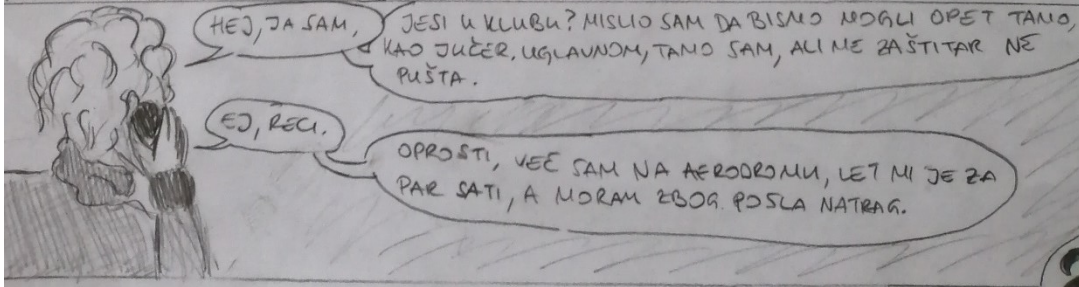 HEJ, JA SAM,
JESI U KLUBU? MISLIO SAM DA BISMO MOGLI OPET TAMO,
KAO JUČER. UGLAVNOM, TAMO SAM, ALI ME ZAŠTITAR NE
PUŠTA.
EJ, RECI.
OPROSTI, VEČ SAM NA AERODROMU, LET MI JE ZA
PAR SATI, A MORAM ZBOG POSLA NATRAG.